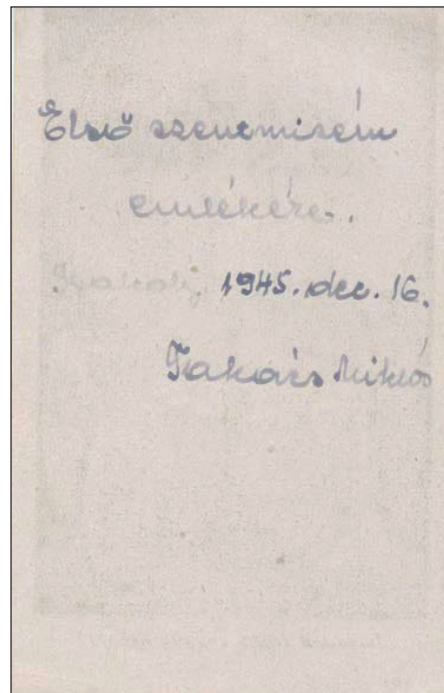 Első szentmisém
emlékére.
1945. dec. 16.
Takács Miklós